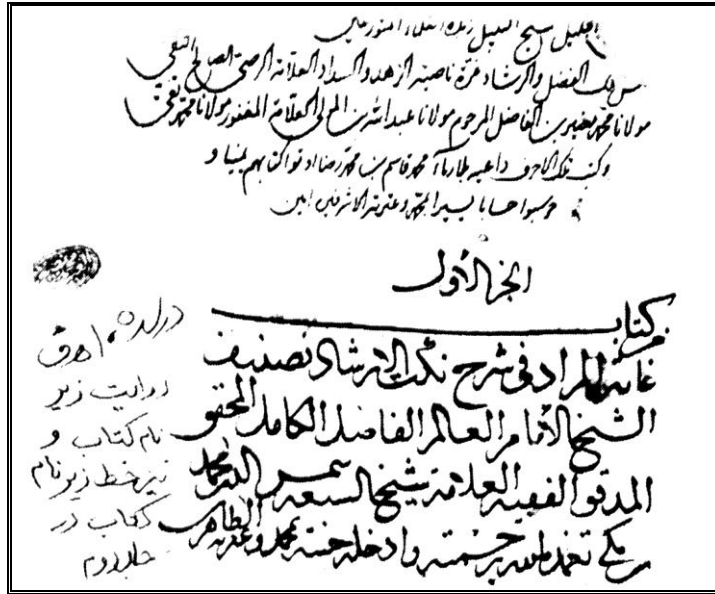 الجليل شيخ النبيل زبدة الفضلاء المتورعين
سالك الفضل والرشاد غرة ناصية الزهد والسداد العلامة الرضي الصالح التقي
مولانا محمد بن الفاضل المرحوم مولانا عبدالله بن المولى العلامة المغفور مولانا محمد تقي
وكتب تلك الاحرف داعيه محمد قاسم بن محمد رضا اوتوا كتابهم بيمينها و
حوسبوا حسابا يسيرا بمحمد وعترته الاشرفين امين
الجزء الأول
كتاب
غاية المراد في شرح نكت الارشاد تصنيف
الشيخ الأمام العالم الفاضل الكامل المحقق
المدقق الفقيه العلامة شيخ الشيعة شمس الدين محمد
بن مكي تغمده الله برحمته وادخله جنته بمحمد وعترته الطاهرين
در
روايت زير
نام كتاب و
نيز خط زير نام
كتاب در
جلد دوم